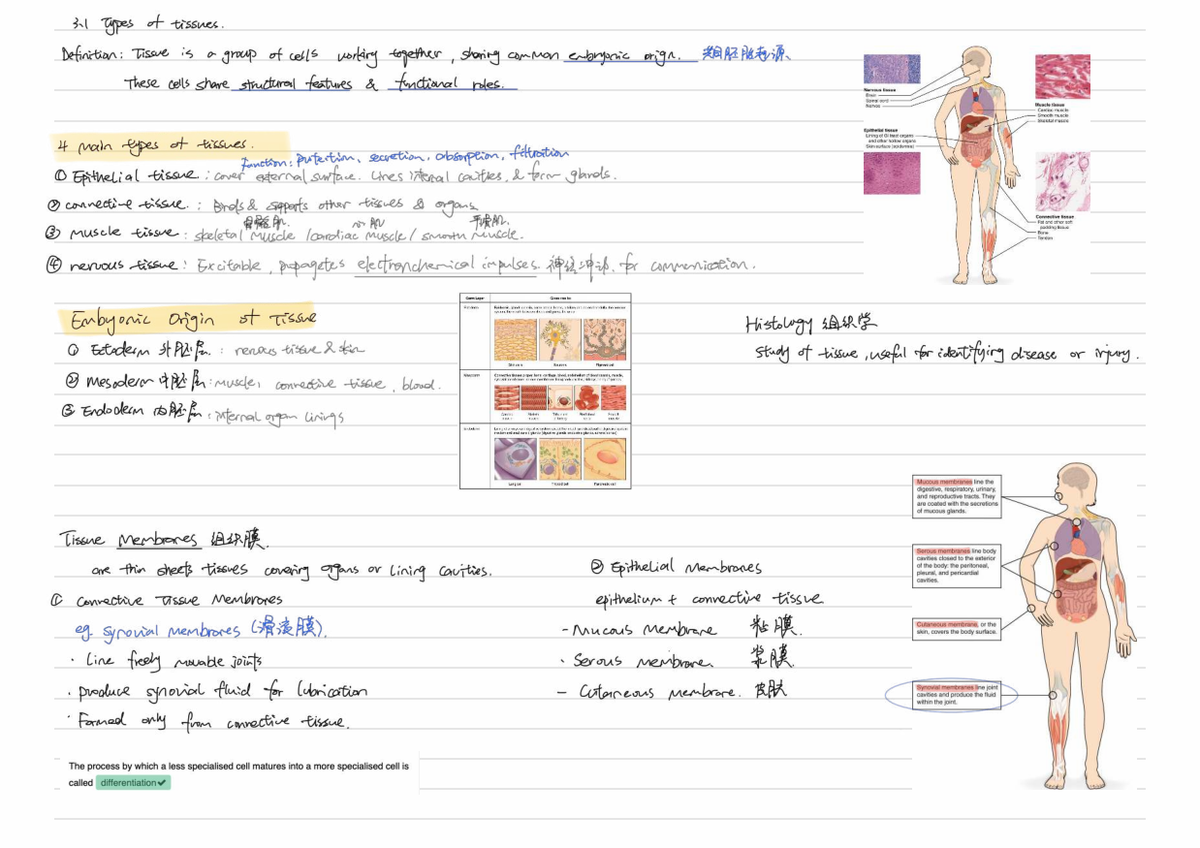 3.1 Types of tissues.
Definition: Tissue is a group of cells working together, sharing common embryonic origin.
These cells share structural features & functional roles.
4 main types of tissues.
function: protection, secretion, absorption, filtration
① Epithelial tissue: cover external surface. Lines internal cavities, & form glands.
② connective tissue.: Binds & supports other tissues & organs
骨骼肌. 心肌 平滑肌.
③ muscle tissue: skeletal muscle / cardiac muscle / smooth muscle.
④ nervous tissue: Excitable, propagetes electronchemical impulses. 神经冲动. for communication.
Nervous tissue
Brain
Spinal cord
Nerves
Epithelial tissue
Lining of GI tract organs
and other hollow organs
Skin surface (epidermis)
Muscle tissue
Cardiac muscle
Smooth muscle
Skeletal muscle
Connective tissue
Fat and other soft
padding tissue
Bone
Tendon
Embyonic Origin of Tissue
① Ectoderm 外胚层: nervous tissue & skin
② Mesoderm 中胚层: muscle, connective tissue, blood.
③ Endoderm 内胚层: internal organ linings
Germ Layer Gives rise to:
Histology 组织学
Study of tissue, useful for identifying disease or injury.
Tissue Membranes 组织膜.
are thin sheets tissues covering organs or lining cavities.
① Connective Tissue Membranes
eg. Synovial Membranes (滑液膜).
· Line freely movable joints
· produce synovial fluid for lubrication
· Formed only from connective tissue.
② Epithelial Membranes
epithelium + connective tissue
- Mucous Membrane 粘膜.
· Serous membrane. 浆膜.
- Cutaneous membrane. 皮肤
Mucous membranes line the
digestive, respiratory, urinary,
and reproductive tracts. They
are coated with the secretions
of mucous glands.
Serous membranes line body
cavities closed to the exterior
of the body: the peritoneal,
pleural, and pericardial
cavities.
Cutaneous membrane, or the
skin, covers the body surface.
Synovial membranes line joint
cavities and produce the fluid
within the joint.
The process by which a less specialised cell matures into a more specialised cell is
called differentiation✔